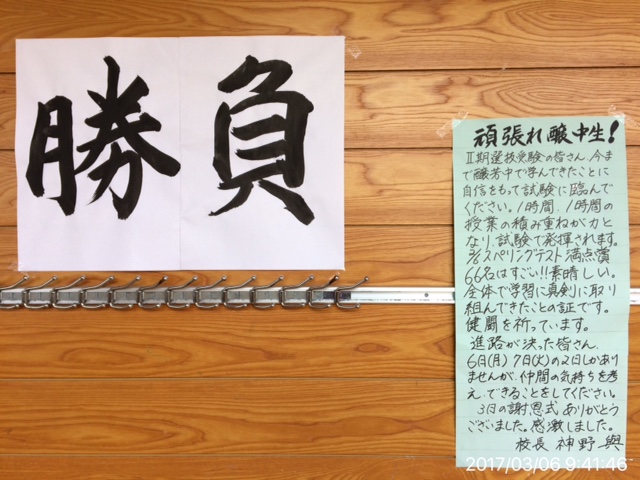 勝負
頑張れ醸中生!
Ⅱ期選抜受験の皆さん、今ま
で醸芳中で学んできたことに
自信をもって試験に臨んで
ください。1時間、1時間の
授業の積み重ねが力と
なり、試験で発揮されます。
スペリングテスト満点賞
66名はすごい!!素晴しい。
全体で学習に真剣に取り
組んできたことの証です。
健闘を祈っています。
進路が決った皆さん、
6日(月)7日(火)の2日しかあり
ませんが、仲間の気持ちを考
え、できることをしてください。
3日の謝恩式ありがとう
ございました。感激しました。
校長 神野 與
2017/03/06 9:41:46